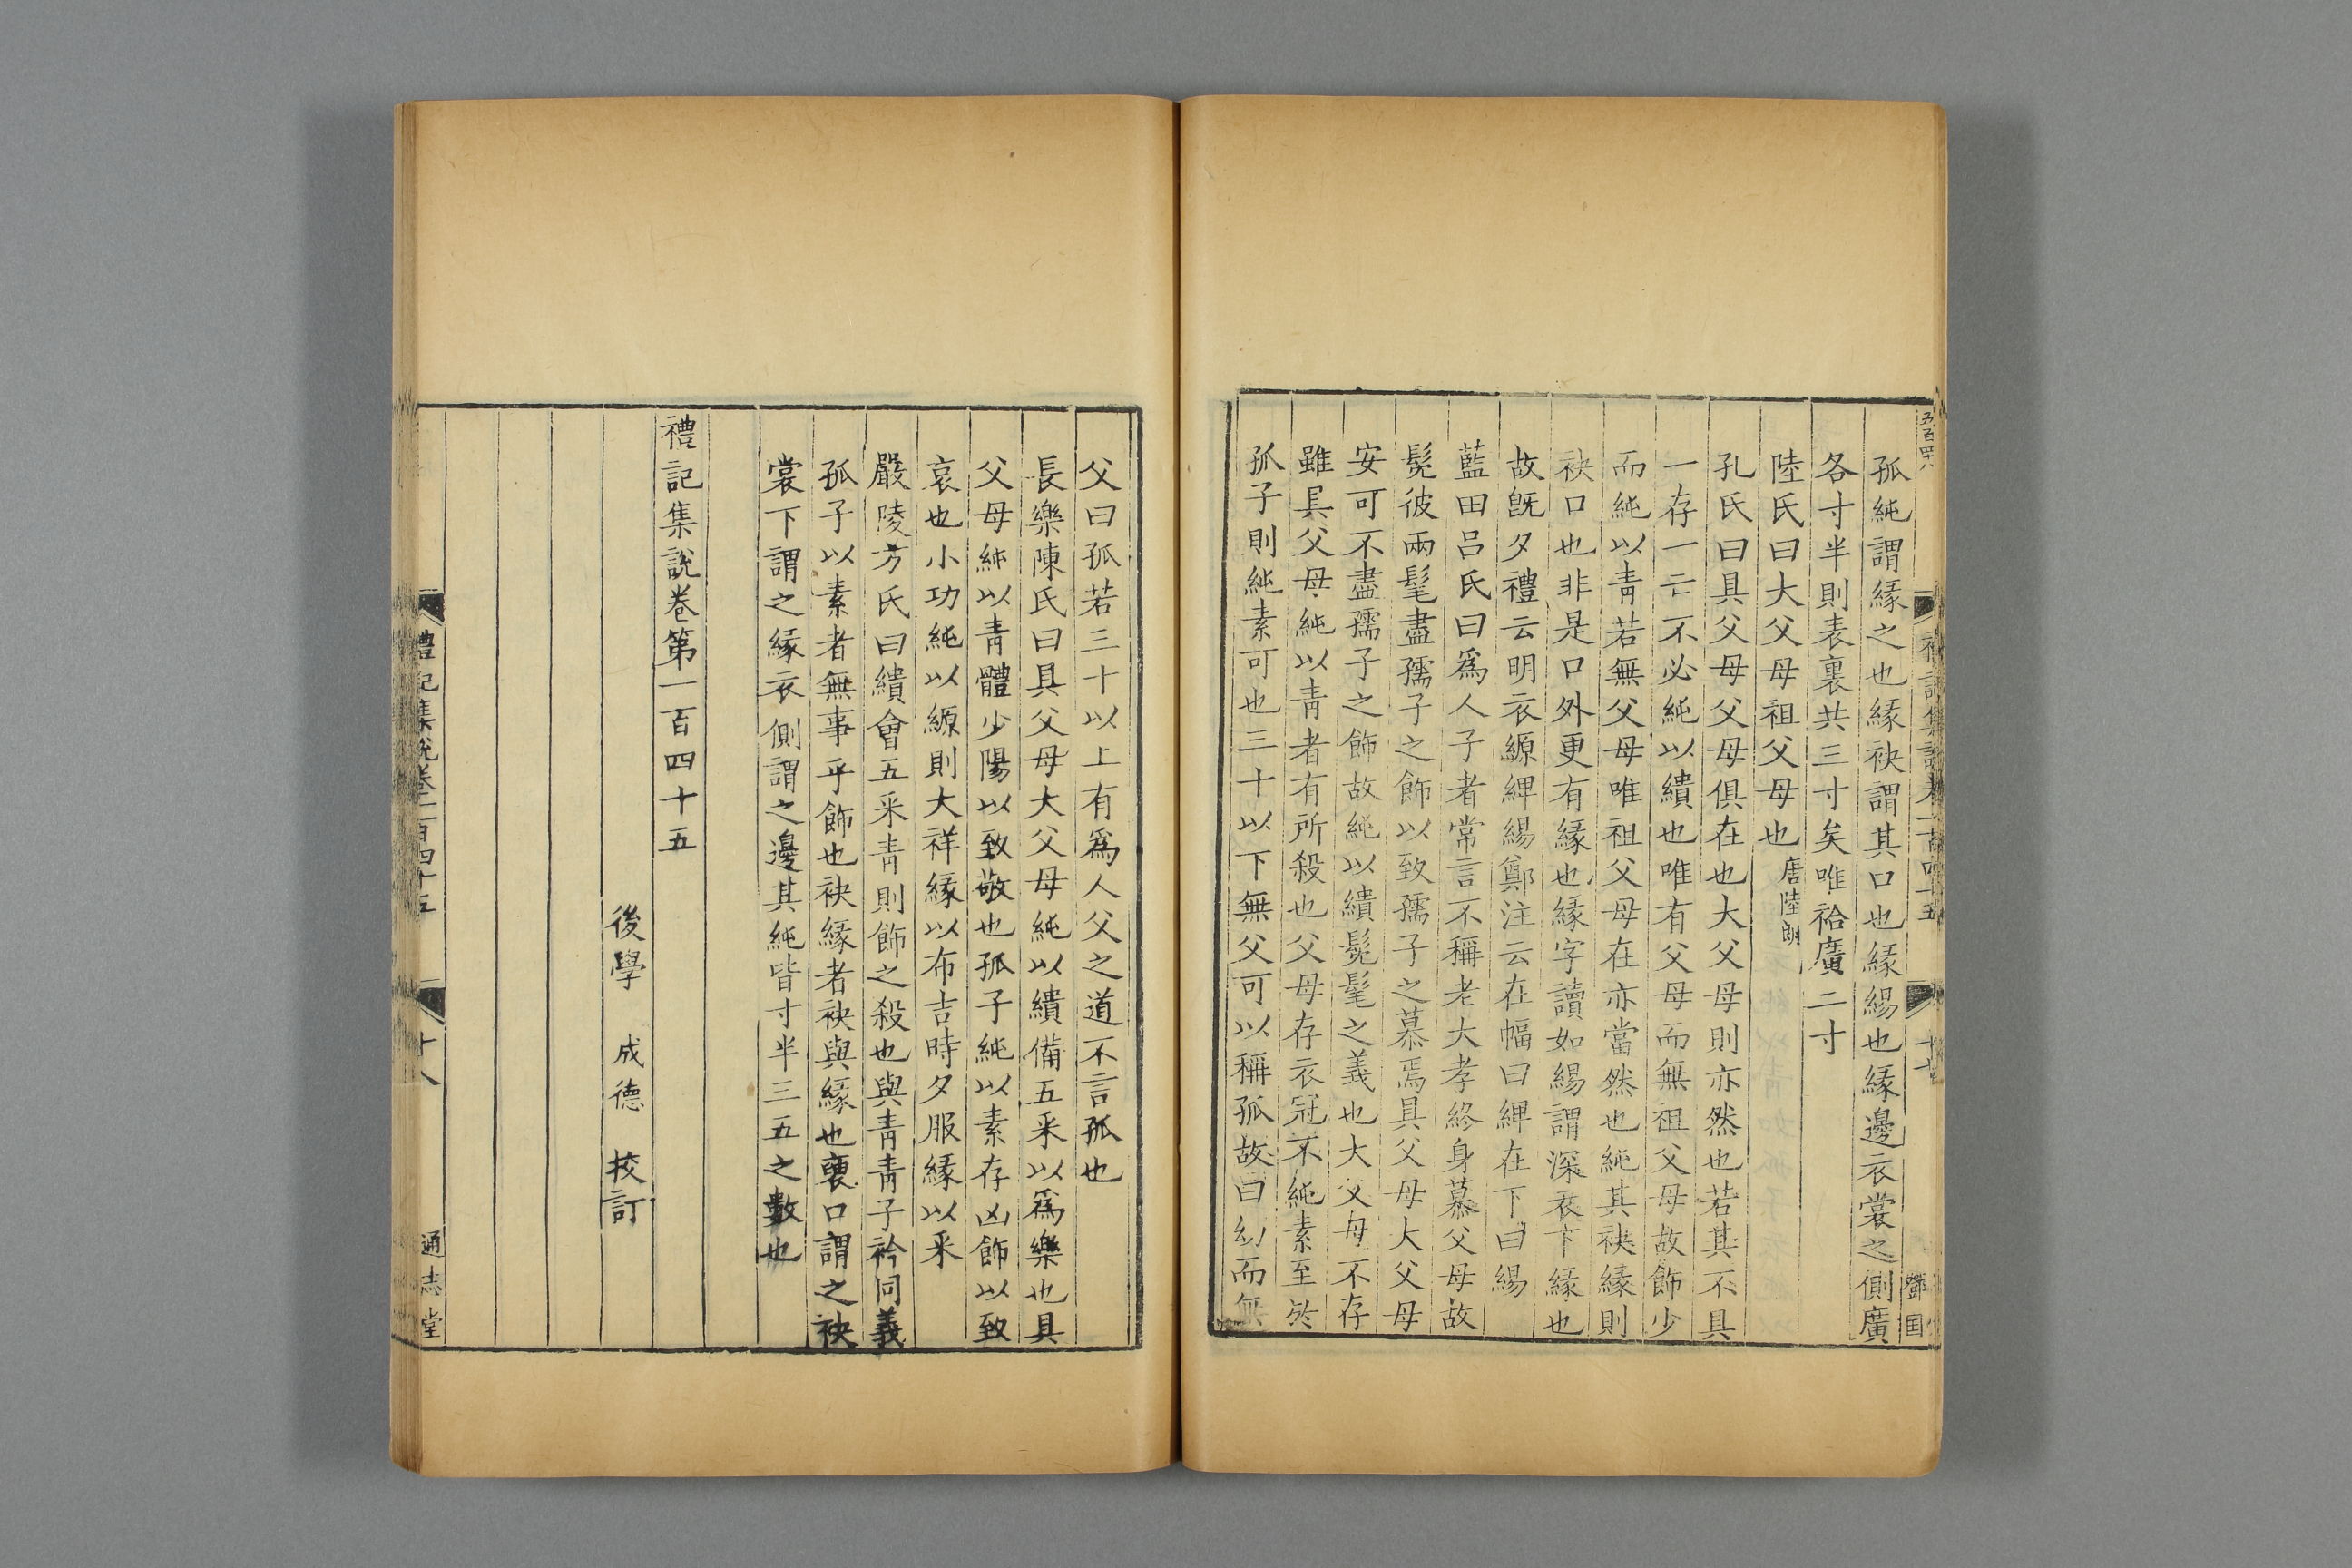 五百四十八
禮記集說卷一百四十五 十七
鄧国
孤純謂緣之也緣袂謂其口也緣緆也緣邊衣裳之側廣
各寸半則表裏共三寸矣唯袷廣二寸
陸氏曰大父母祖父母也唐陸朗
孔氏曰具父母父母俱在也大父母則亦然也若其不具
一存一亡不必純以繢也唯有父母而無祖父母故飾少
而純以青若無父母唯祖父母在亦當然也純其袂緣則
袂口也非是口外更有緣也緣字讀如緆謂深衣下緣也
故旣夕禮云明衣縓綼緆鄭注云在幅曰綼在下曰緆
藍田呂氏曰爲人子者常言不稱老大孝終身慕父母故
髧彼兩髦盡孺子之飾以致孺子之慕焉具父母大父母
安可不盡孺子之飾故純以繢髧髦之義也大父母不存
雖具父母純以青者有所殺也父母存衣冠不純素至於
孤子則純素可也三十以下無父可以稱孤故曰幼而無
父曰孤若三十以上有爲人父之道不言孤也
長樂陳氏曰具父母大父母純以繢備五采以爲樂也具
父母純以青體少陽以致敬也孤子純以素存凶飾以致
哀也小功純以縓則大祥緣以布吉時夕服緣以采
嚴陵方氏曰繢會五采青則飾之殺也與青青子衿同義
孤子以素者無事乎飾也袂緣者袂與緣也裏口謂之袂
裳下謂之緣衣側謂之邊其純皆寸半三五之數也
禮記集說卷第一百四十五
後學 成德 挍訂
禮記集說卷一百四十五 十八
通志堂